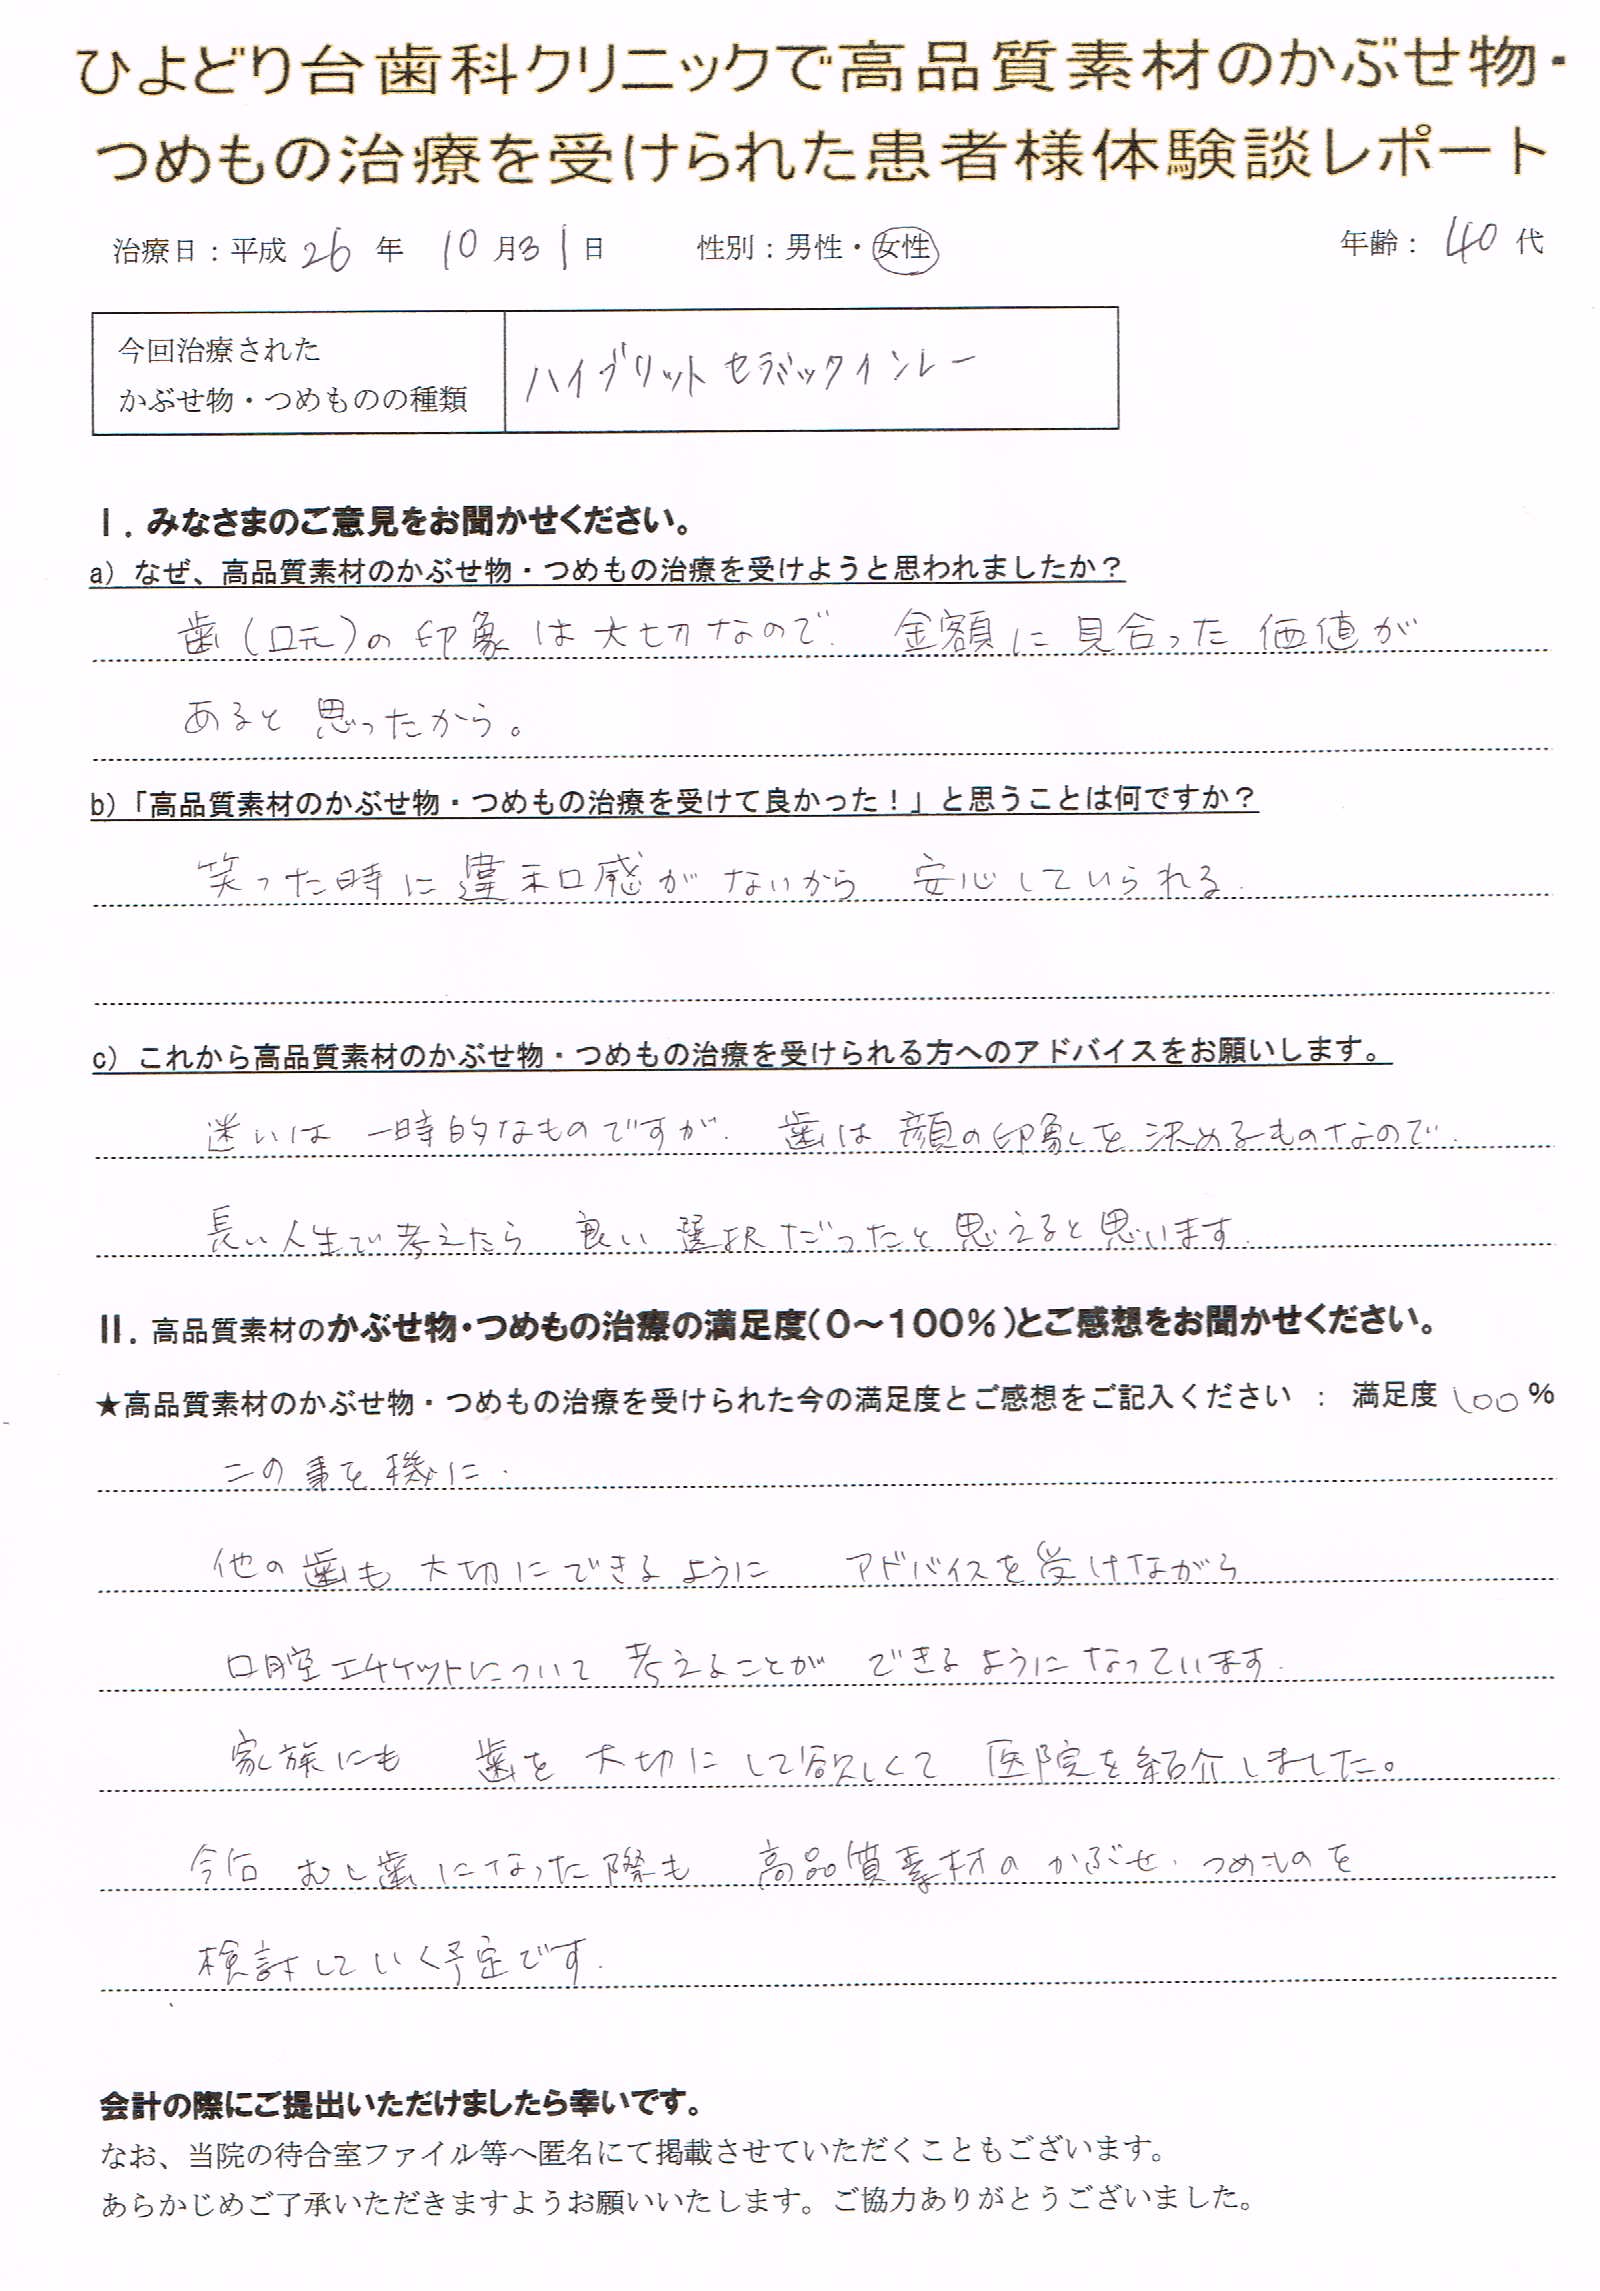 ひよどり台歯科クリニックで高品質素材のかぶせ物・
つめもの治療を受けられた患者様体験談レポート
治療日：平成 26 年 10 月 31 日 性別：男性・女性 年齢： 40 代
今回治療された
かぶせ物・つめものの種類
ハイブリットセラミックインレー
Ⅰ．みなさまのご意見をお聞かせください。
a）なぜ、高品質素材のかぶせ物・つめもの治療を受けようと思われましたか？
歯（口元）の印象は大切なので、金額に見合った価値が
あると思ったから。
b）「高品質素材のかぶせ物・つめもの治療を受けて良かった！」と思うことは何ですか？
笑った時に違和感がないから 安心していられる.
c）これから高品質素材のかぶせ物・つめもの治療を受けられる方へのアドバイスをお願いします。
迷いは一時的なものですが、歯は顔の印象を決めるものなので、
長い人生で考えたら 良い選択だったと思えると思います.
Ⅱ．高品質素材のかぶせ物・つめもの治療の満足度（０～１００％）とご感想をお聞かせください。
★高品質素材のかぶせ物・つめもの治療を受けられた今の満足度とご感想をご記入ください ： 満足度 100 %
この事を機に、
他の歯も大切にできるように アドバイスを受けながら
口腔エチケットについて考えることが できるようになっています.
家族にも 歯を大切にして欲しくて 医院を紹介しました。
今后 むし歯になった際も 高品質素材のかぶせ・つめものを
検討していく予定です.
会計の際にご提出いただけましたら幸いです。
なお、当院の待合室ファイル等へ匿名にて掲載させていただくこともございます。
あらかじめご了承いただきますようお願いいたします。ご協力ありがとうございました。